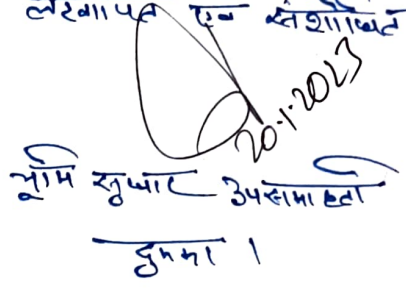 लेखापित एवं संशोधित
20.1.2023
भूमि सुधार उपसमाहर्ता
दुमका ।